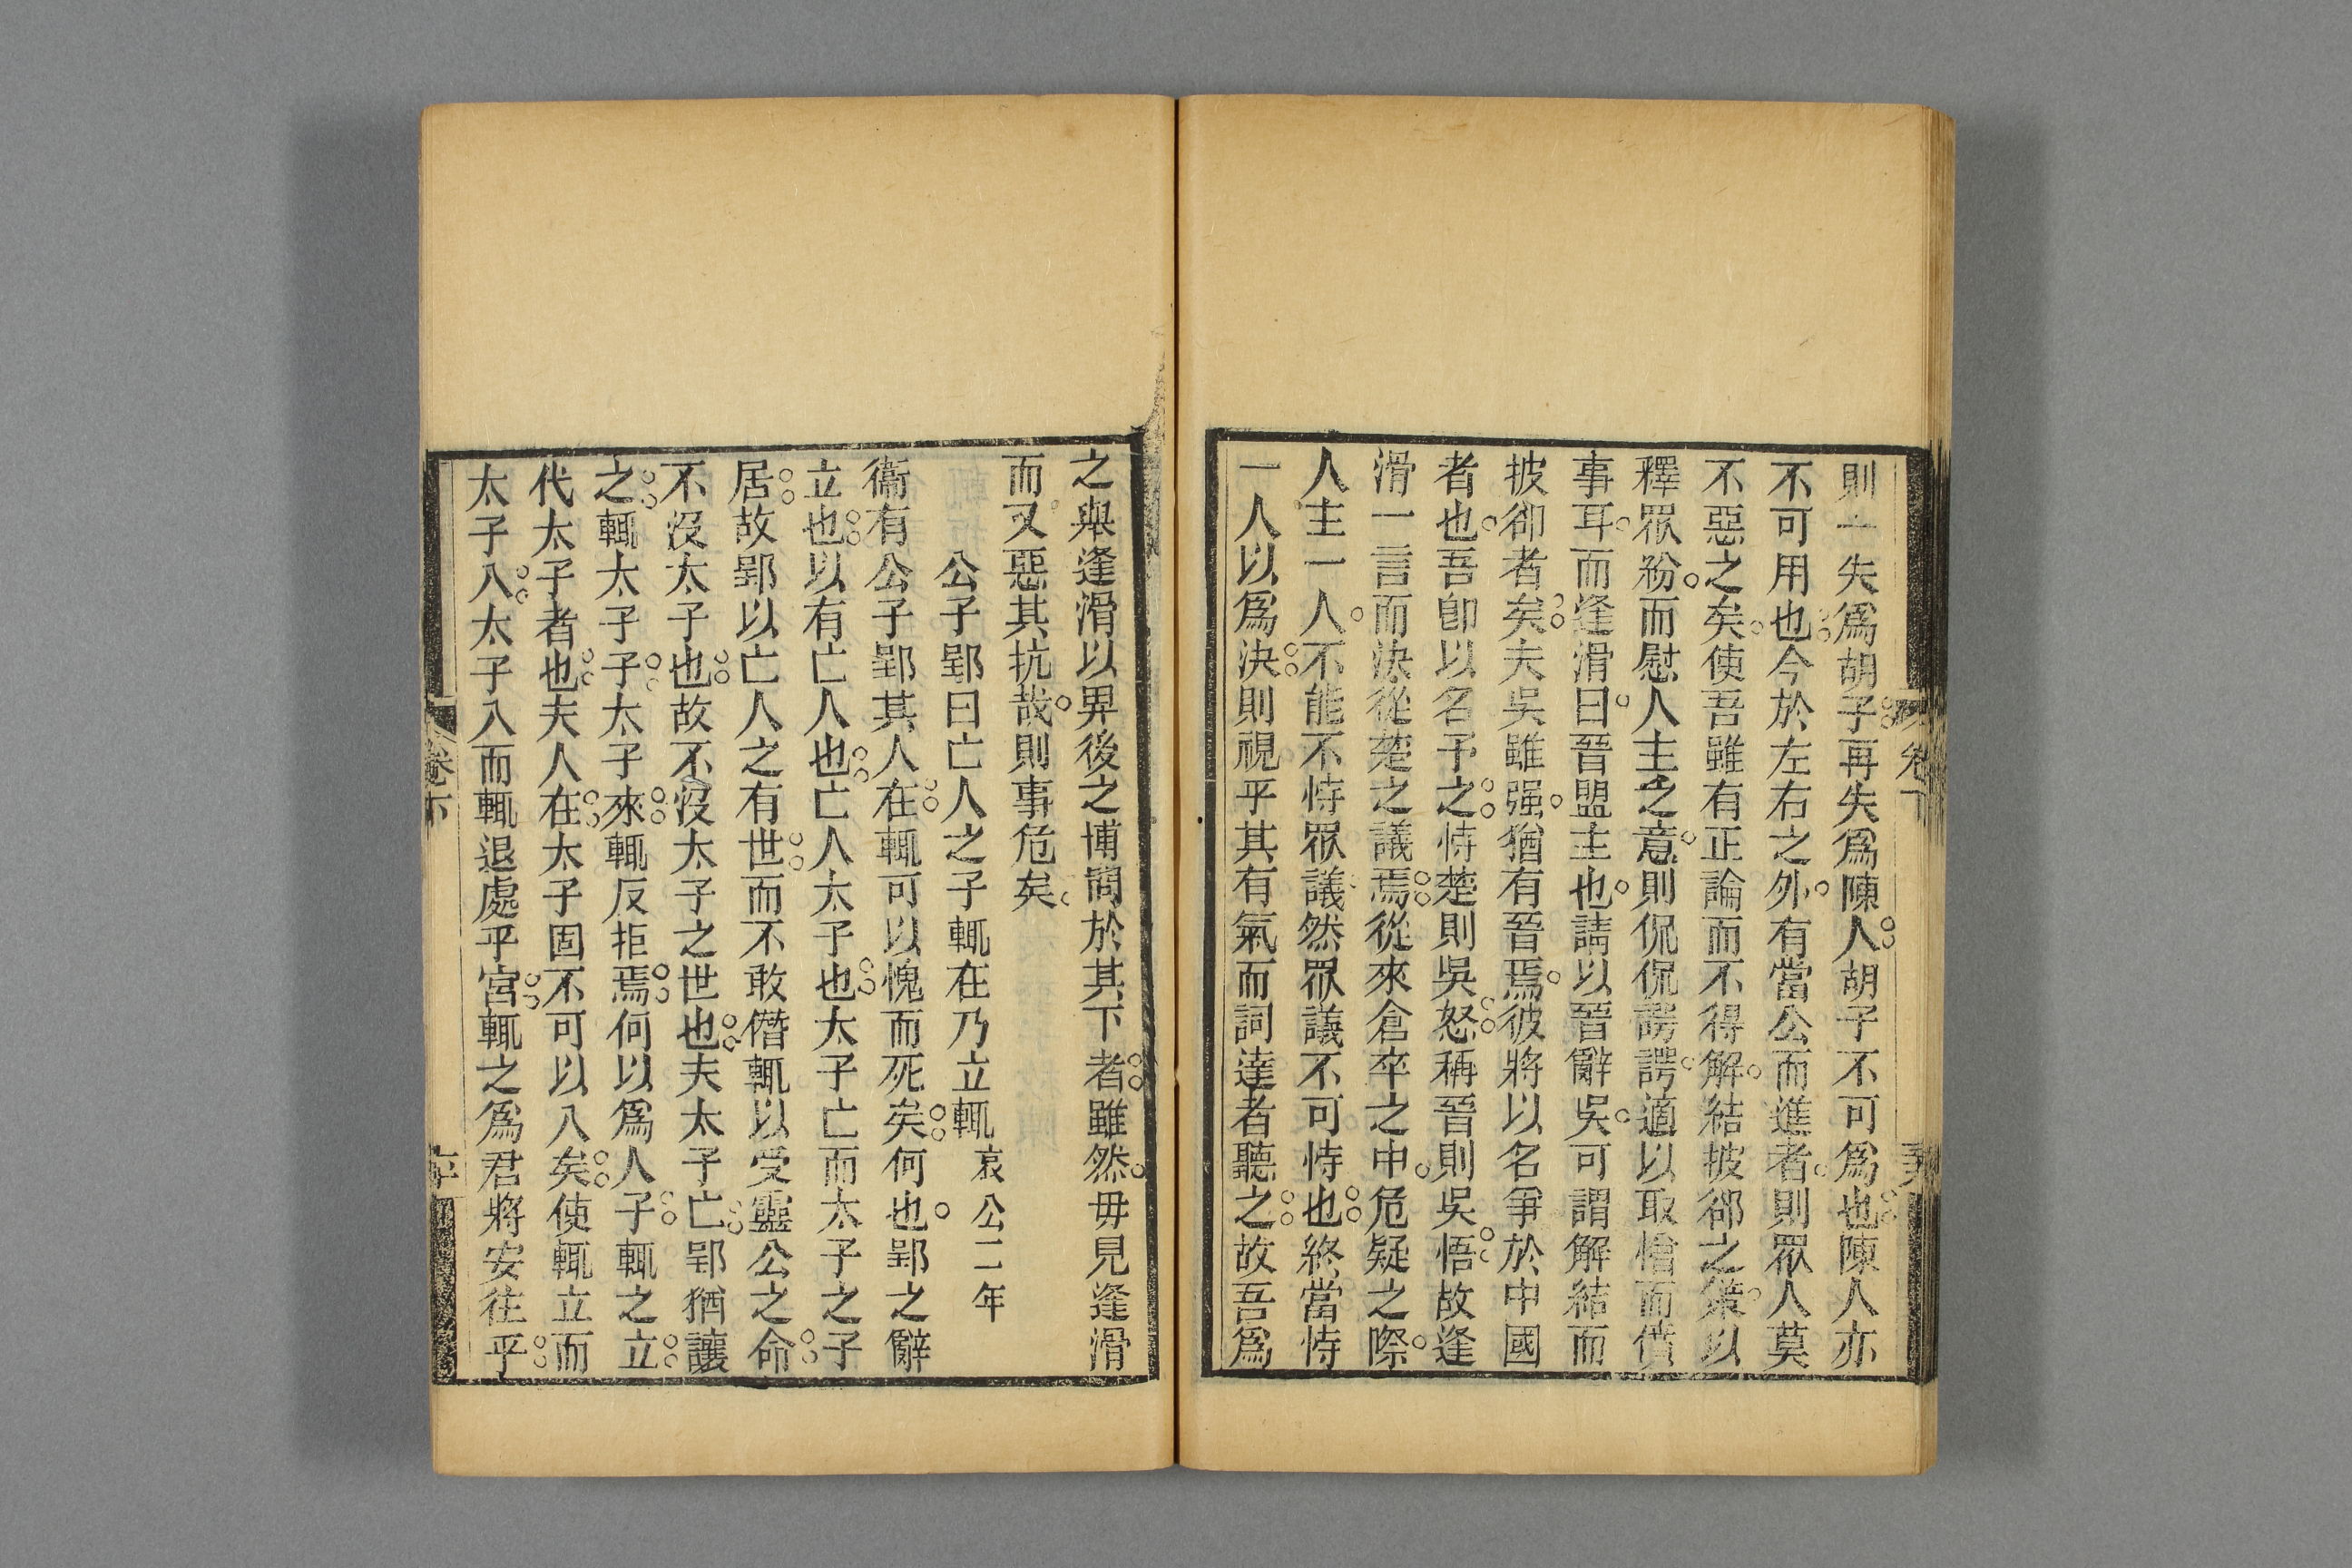 則一失爲胡子再失爲陳人胡子不可爲也陳人亦
不可用也今於左右之外有當公而進者則眾人莫
不惡之矣使吾雖有正論而不得解結披郤之策以
釋眾紛而慰人主之意則侃侃諤諤適以取憎而僨
事耳而逢滑曰晉盟主也請以晉辭吳可謂解結而
披郤者矣夫吳雖强猶有晉焉彼將以名爭於中國
者也吾卽以名予之恃楚則吳怒稱晉則吳悟故逢
滑一言而決從楚之議焉從來倉卒之中危疑之際
人主一人不能不恃眾議然眾議不可恃也終當恃
一人以爲決則視乎其有氣而詞達者聽之故吾爲
卷下
之舉逢滑以畀後之博問於其下者雖然毋見逢滑
而又惡其抗哉則事危矣
公子郢曰亡人之子輒在乃立輒 哀公二年
衞有公子郢其人在輒可以愧而死矣何也郢之辭
立也以有亡人也亡人太子也太子亡而太子之子
居故郢以亡人之有世而不敢僭輒以受靈公之命
不沒太子也故不沒太子之世也夫太子亡郢猶讓
之輒太子子太子來輒反拒焉何以爲人子輒之立
代太子者也夫人在太子固不可以入矣使輒立而
太子入太子入而輒退處乎宮輒之爲君將安往乎
卷下